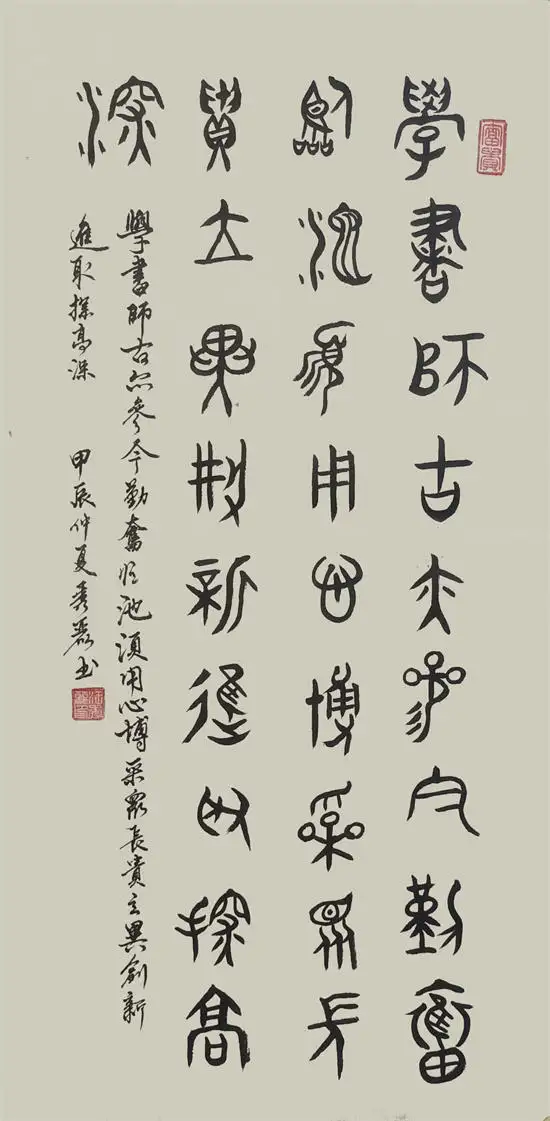 學書師古亦參今勤奮
臨池須用心博采眾長
貴立異創新進取探高
深
學書師古亦參今勤奮臨池須用心博采眾長貴立異創新
進取探高深
甲辰仲夏秀书